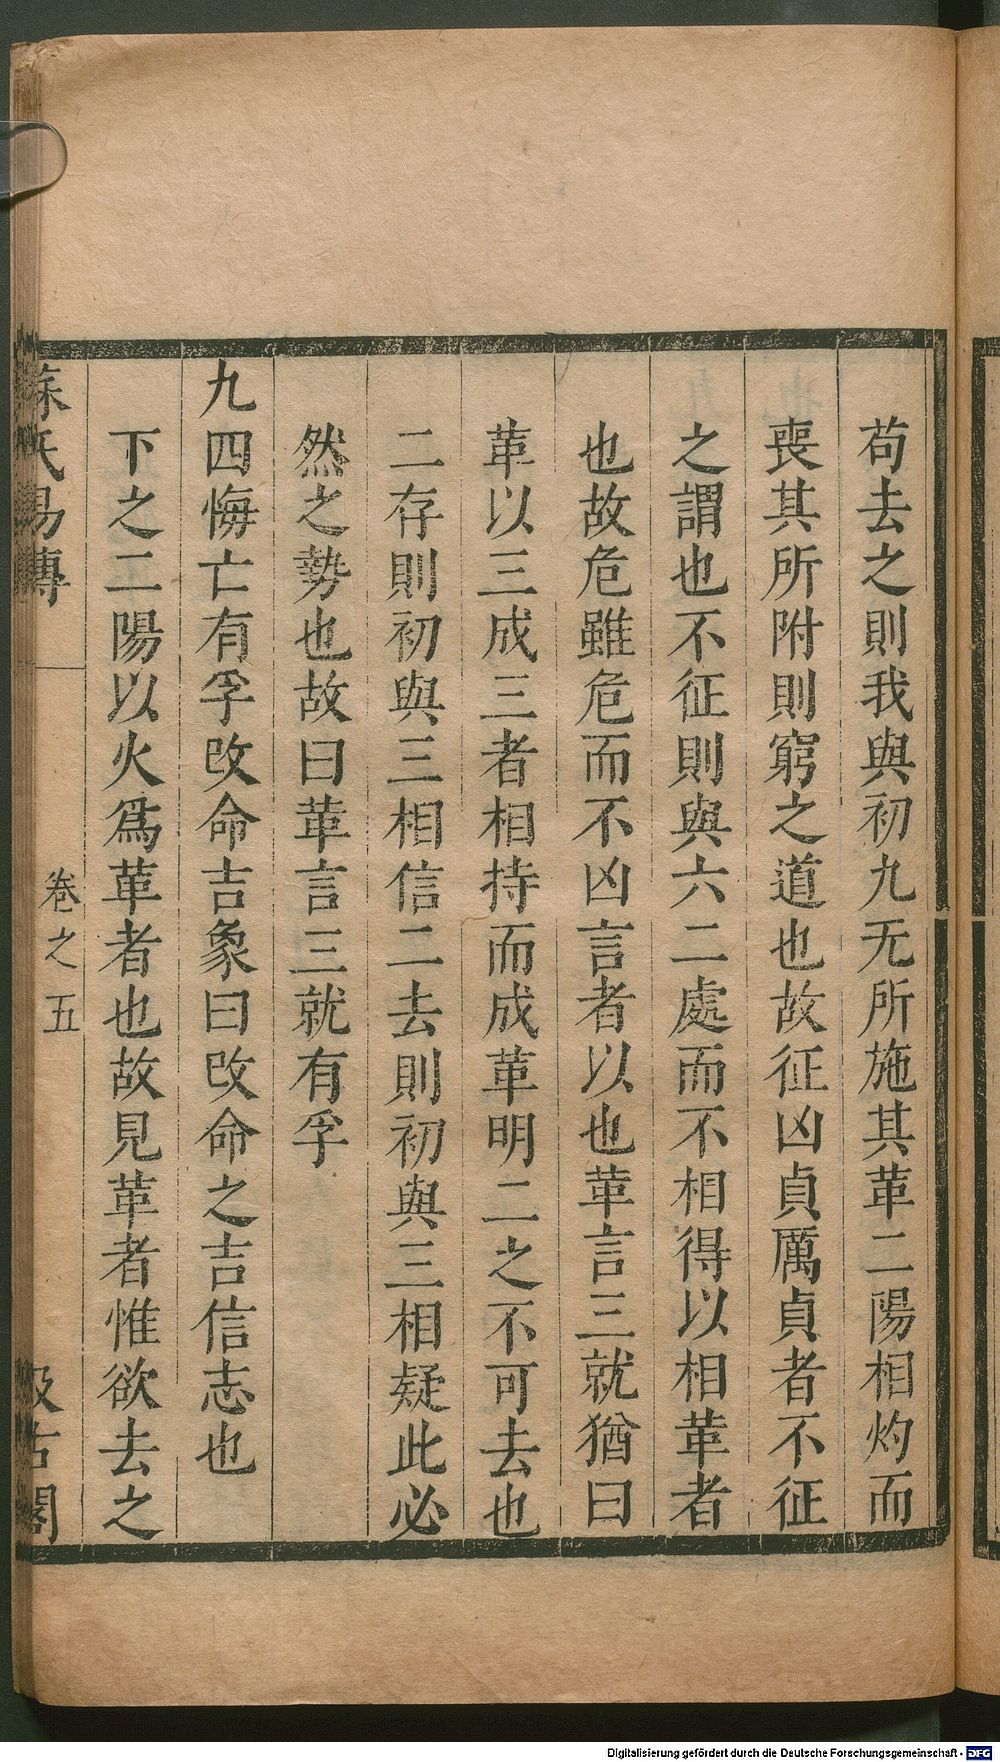 苟去之則我與初九无所施其革二陽相灼而
喪其所附則窮之道也故征凶貞厲貞者不征
之謂也不征則與六二處而不相得以相革者
也故危雖危而不凶言者以也革言三就猶曰
革以三成三者相持而成革明二之不可去也
二存則初與三相信二去則初與三相疑此必
然之勢也故曰革言三就有孚
九四悔亡有孚改命吉象曰改命之吉信志也
下之二陽以火爲革者也故見革者惟欲去之
蘇氏易傳 卷之五 汲古閣
Digitalisierung gefördert durch die Deutsche Forschungsgemeinschaft - DFG